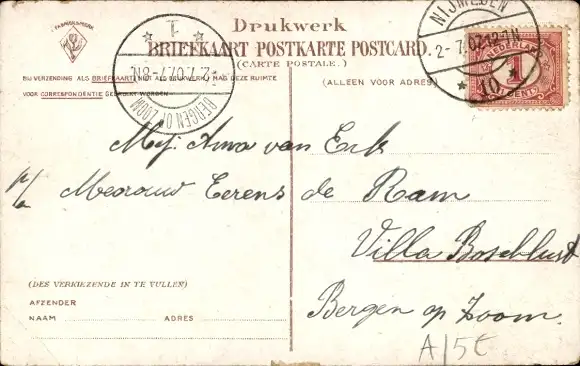 FABRIEKSMERK
Drukwerk
BRIEFKAART POSTKARTE POSTCARD.
(CARTE POSTALE.)
BIJ VERZENDING ALS BRIEFKAART NIET ALS DRUKWERK) MAG DEZE RUIMTE
VOOR CORRESPONDENTIE GEBRUIKT WORDEN
(ALLEEN VOOR ADRES)
1
2.7.07.7-8N
BERGEN OP ZOOM
NIJMEGEN
2-7.07.12-1N
10
NEDERLAND
1
CENT
Mej: Anna van Eck
p/a Mevrouw Eerens de Ram
Villa Boschlust
Bergen op Zoom.
(DES VERKIEZENDE IN TE VULLEN)
AFZENDER
NAAM ADRES
A/5E